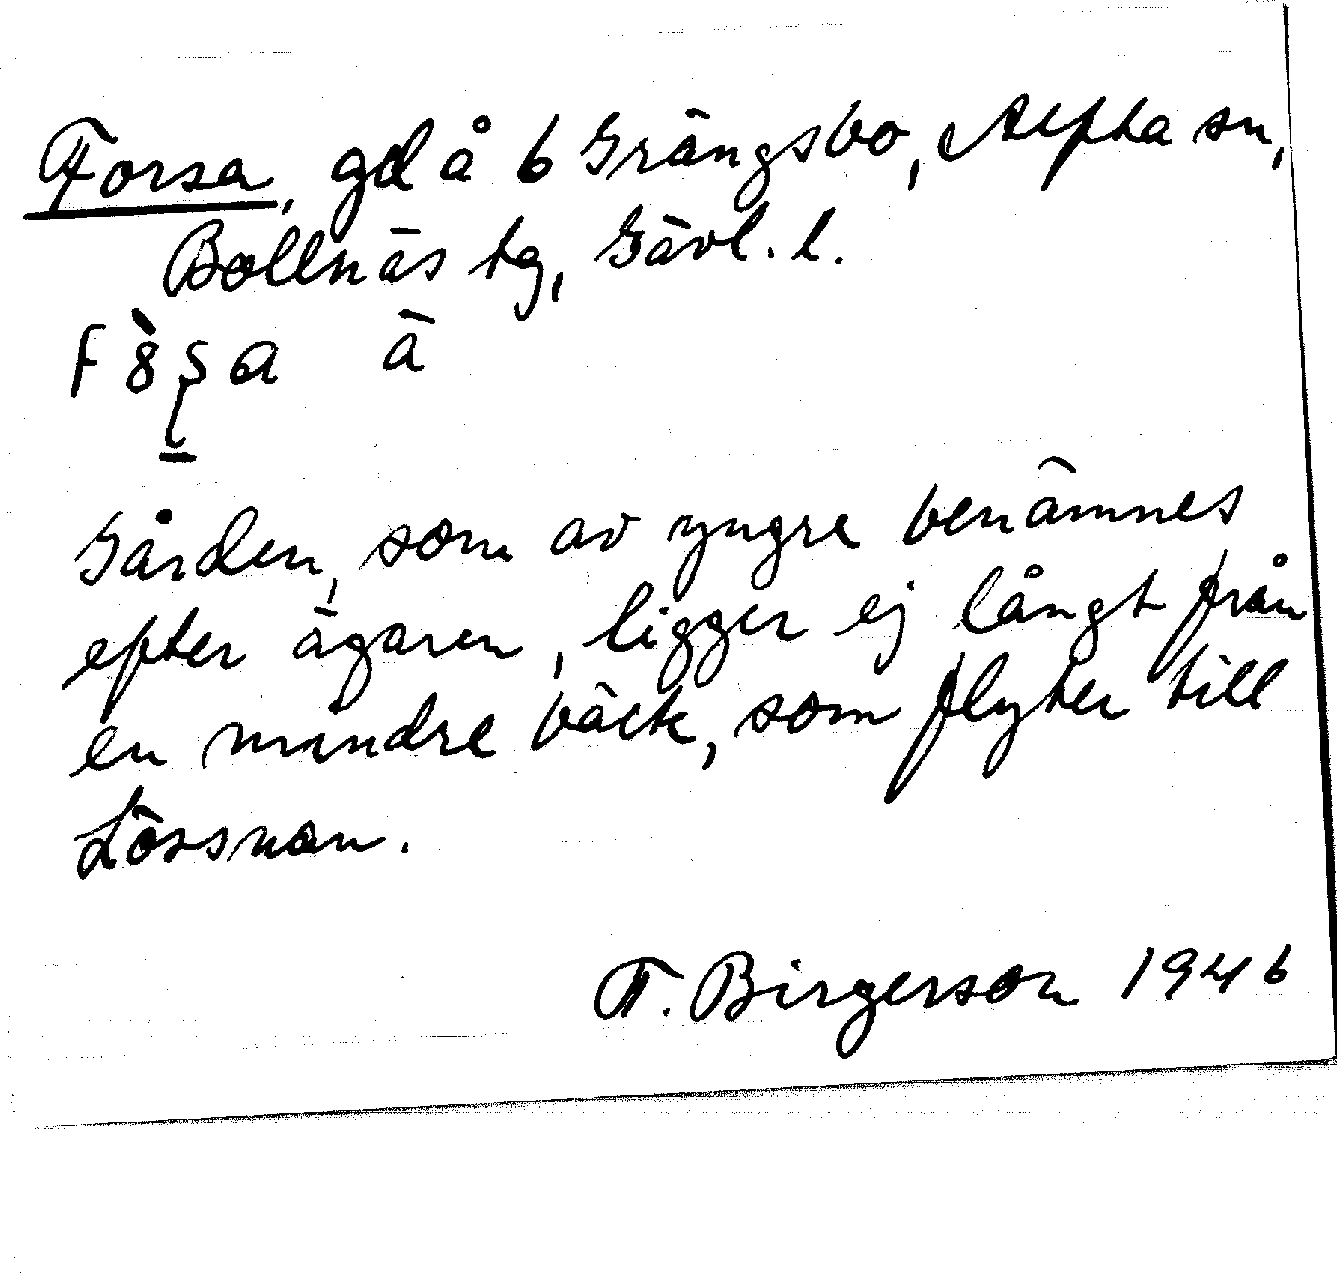 Forsa, gd å 6 Grängsbo, Alfta sn,
Bollnäs tg, Gävl. l.
F ä
Gården, som av yngre benämnes
efter ägaren, ligger ej långt från
en mindre bäck, som flyter till
Lössnan.
F. Birgerson 1946